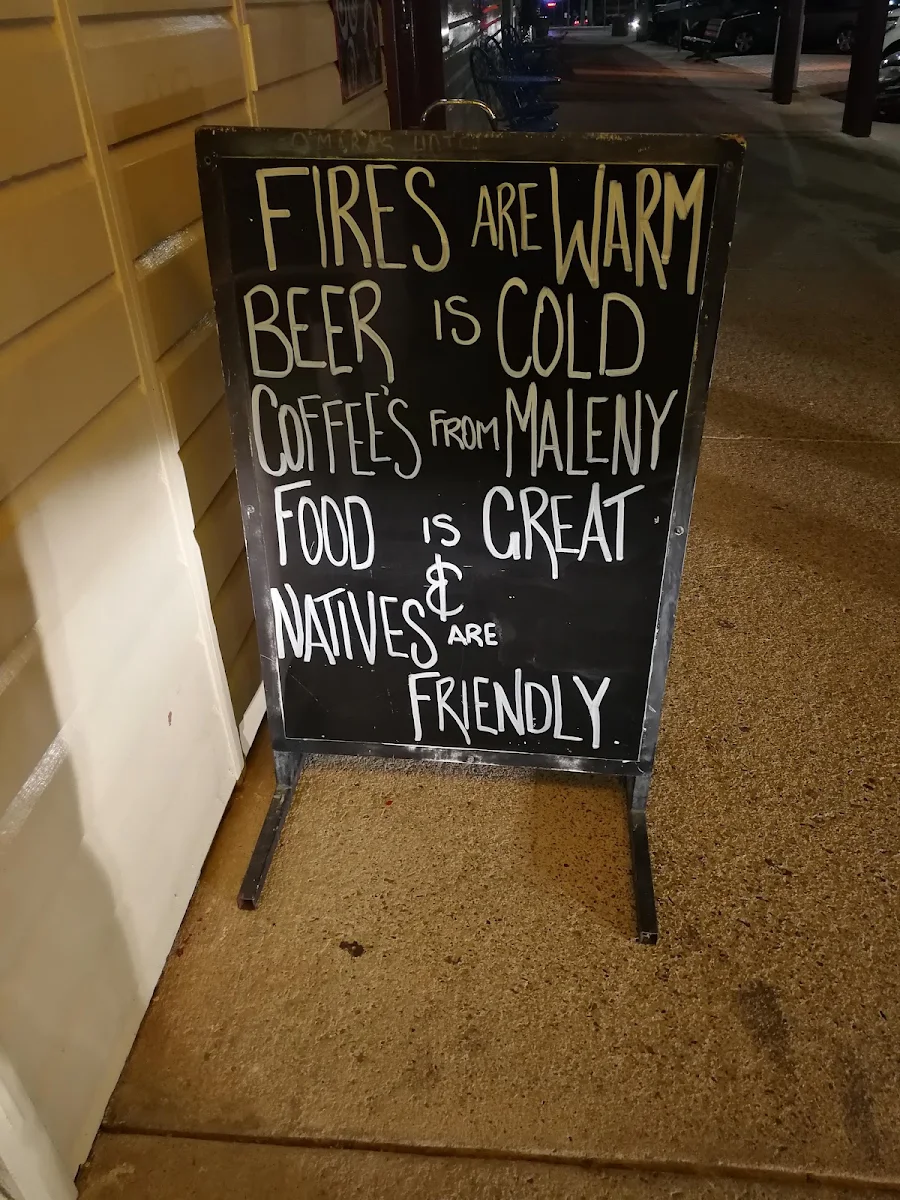 FIRES ARE WARM
BEER IS COLD
COFFEE'S FROM MALENY
FOOD IS GREAT
&
NATIVES ARE
FRIENDLY.